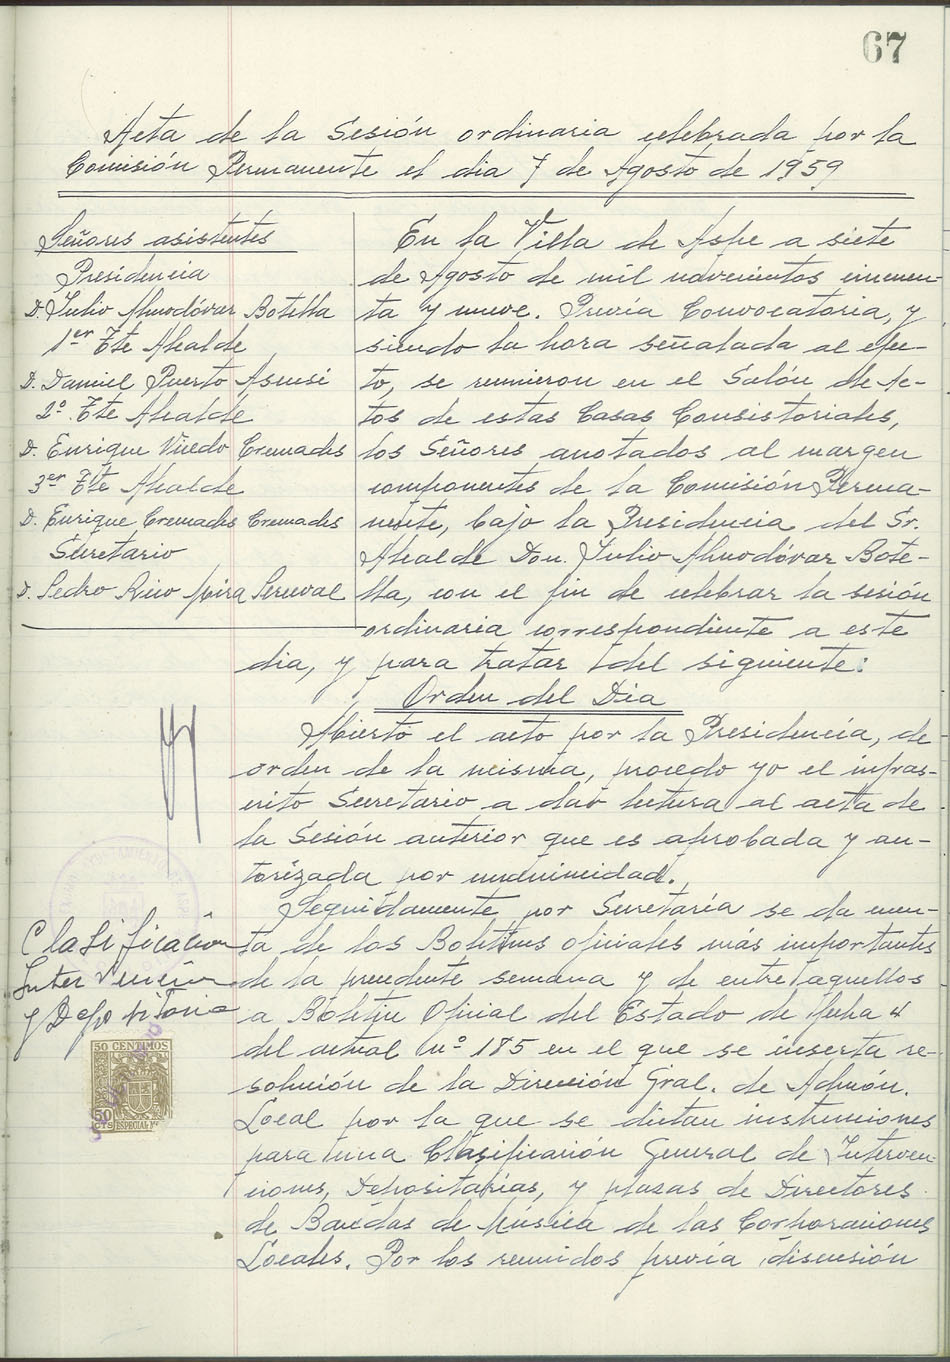 67
Acta de la Sesión ordinaria celebrada por la
Comisión Permanente el dia 7 de Agosto de 1959
Señores asistentes
Presidencia
D. Julio Almodóvar Botella
1er Tte Alcalde
D. Daniel Puerto Asensi
2º Tte Alcalde
D. Enrique Viudo Cremades
3er Tte Alcalde
D. Enrique Cremades Cremades
Secretario
D. Pedro Rico Mira Perceval
En la Villa de Aspe a siete
de Agosto de mil novecientos cincuen-
ta y nueve. Previa Convocatoria, y
siendo la hora señalada al efec-
to, se reunieron en el Salón de Ac-
tos de estas Casas Consistoriales,
los Señores anotados al margen
componentes de la Comisión Perma-
nente, bajo la Presidencia del Sr.
Alcalde Don Julio Almodóvar Bote-
lla, con el fin de celebrar la sesión
ordinaria correspondiente a este
dia, y para tratar del siguiente:
Orden del Dia
Abierto el acto por la Presidencia, de
orden de la misma, procedo yo el infras-
crito Secretario a dar lectura al acta de
la Sesión anterior que es aprobada y au-
torizada por unanimidad.
Clasificación
Intervención
y Depositaria
50 CENTIMOS
50
CTS
ESPECIAL
Seguidamente por Secretaría se da cuen-
ta de los Boletines oficiales más importantes
de la precedente semana y de entre aquellos
a Boletin Oficial del Estado de fecha 4
del actual nº 185 en el que se inserta re-
solución de la Dirección Gral. de Admón.
Local por la que se dictan instrucciones
para una Clasificación General de Interven-
ciones, Depositarías, y plazas de Directores
de Bandas de Música de las Corporaciones
Locales. Por los reunidos previa discusión